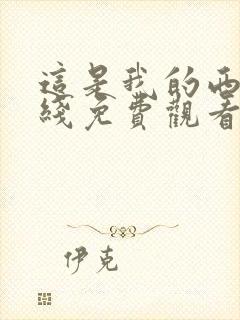 這是我的西
綫免費觀看
伊克